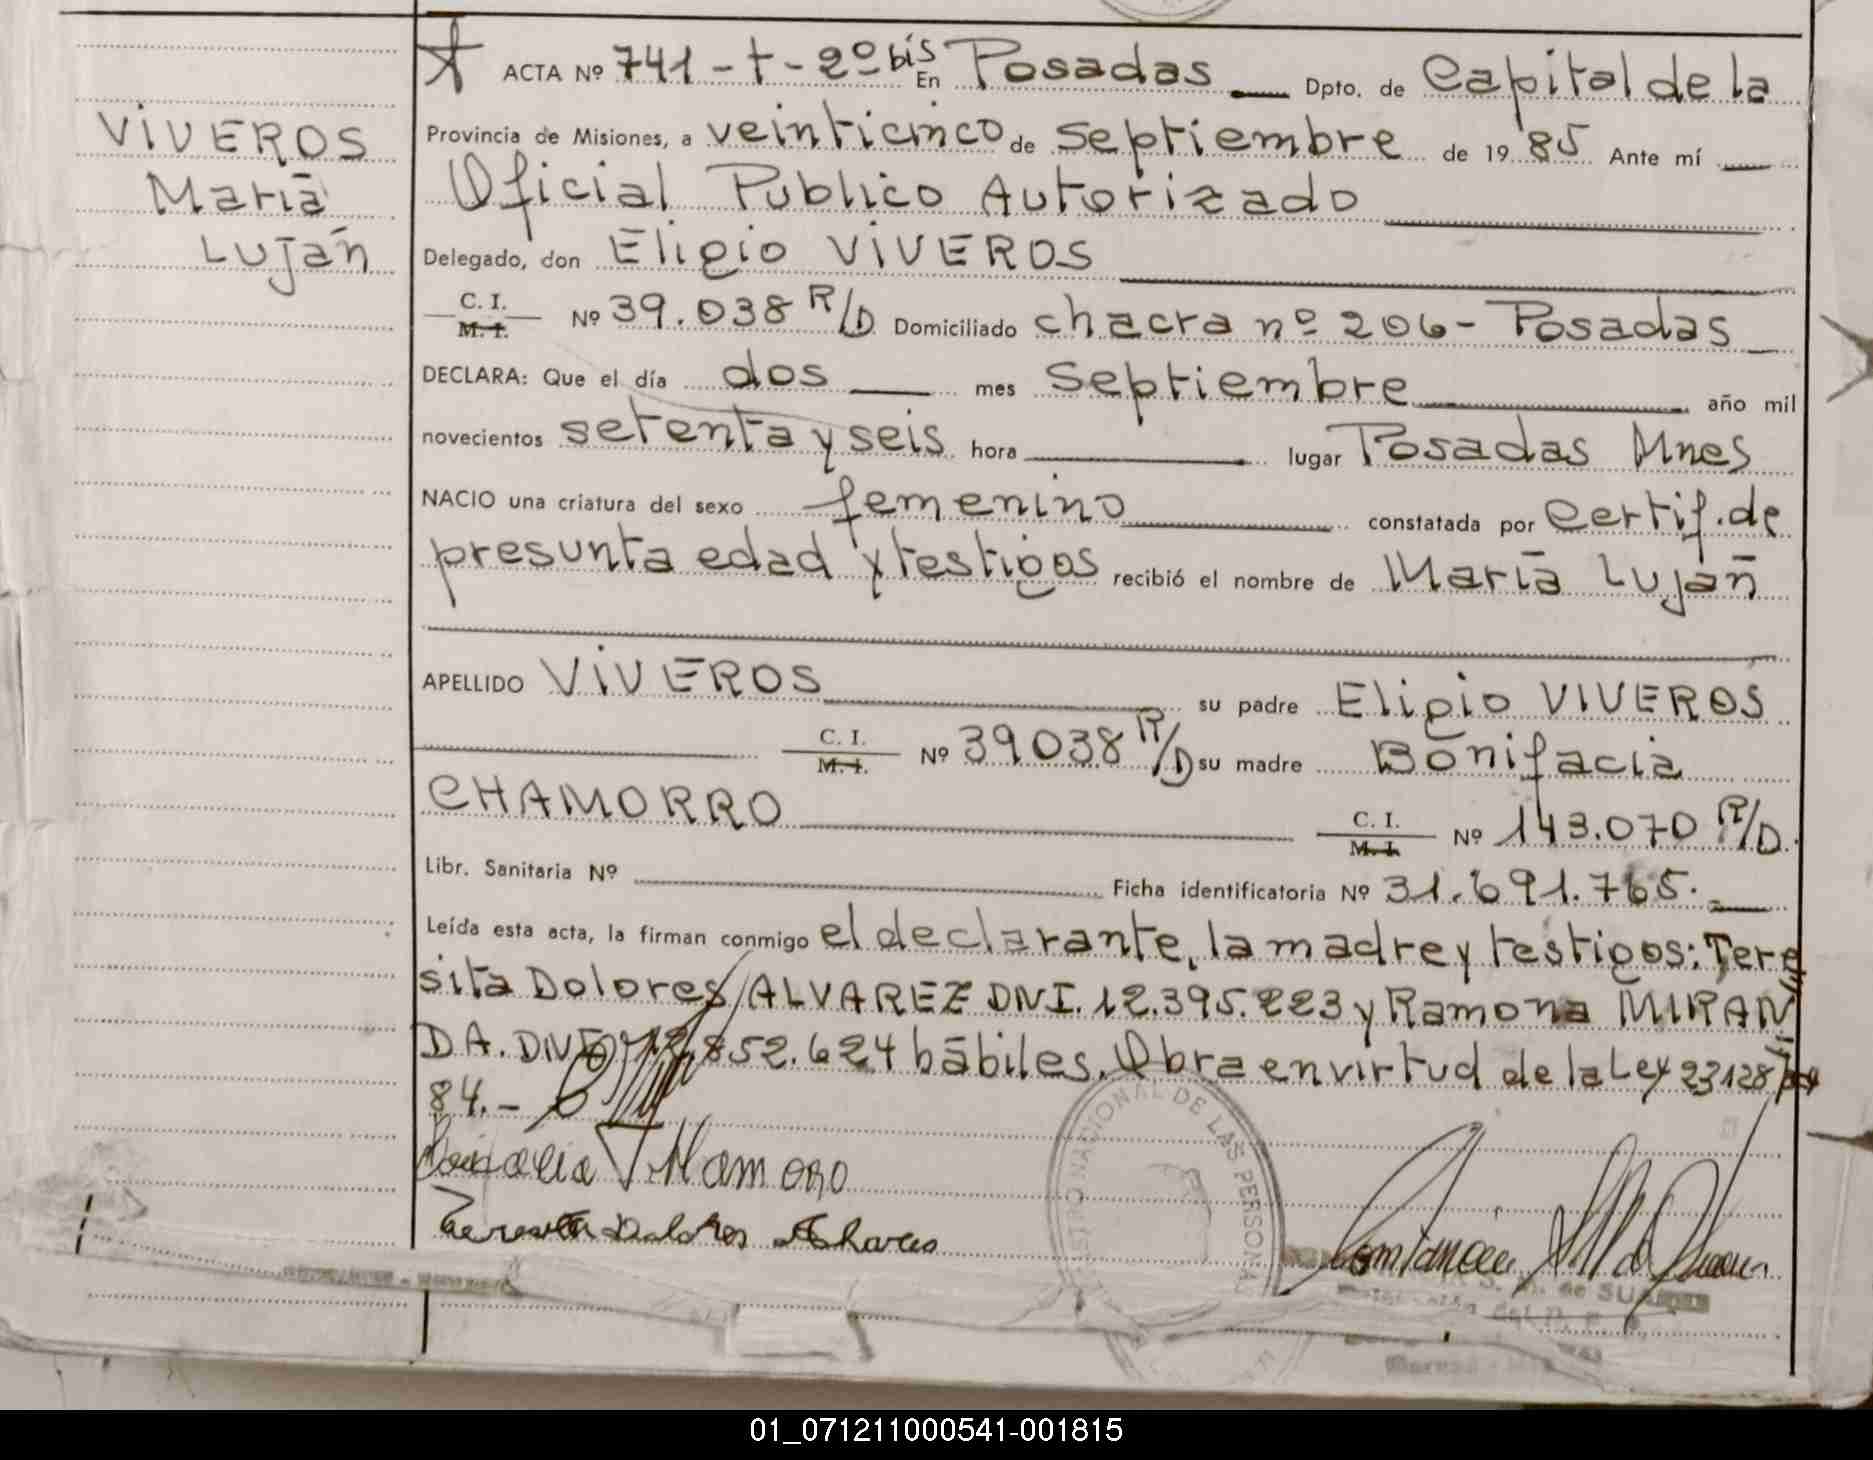 VIVEROS
María
Luján
ACTA Nº 741-t-2º bis En Posadas Dpto. de Capital de la
Provincia de Misiones, a veinticinco de septiembre de 1985 Ante mí
Oficial Publico Autorizado
Delegado, don Eligio VIVEROS
C. I.
M. I. Nº 39.038 R/D Domiciliado chacra nº 206 - Posadas
DECLARA: Que el día dos mes septiembre año mil
novecientos setenta y seis hora lugar Posadas Mnes
NACIO una criatura del sexo femenino constatada por Certif. de
presunta edad y testigos recibió el nombre de María Luján
APELLIDO VIVEROS su padre Eligio VIVEROS
C. I.
M. I. Nº 39038 R/D su madre Bonifacia
CHAMORRO C. I.
M. I. Nº 143.070 R/D.
Libr. Sanitaria Nº Ficha identificatoria Nº 31.691.765.
Leída esta acta, la firman conmigo el declarante, la madre y testigos: Tere
sita Dolores ALVAREZ DNI. 12.395.223 y Ramona MIRAN
DA. DNI 852.624 hábiles. Obra en virtud de la Ley 23128/
84.-
REGISTRO NACIONAL DE LAS PERSONAS
Teresita Dolores
S. de SUAREZ
01_071211000541-001815